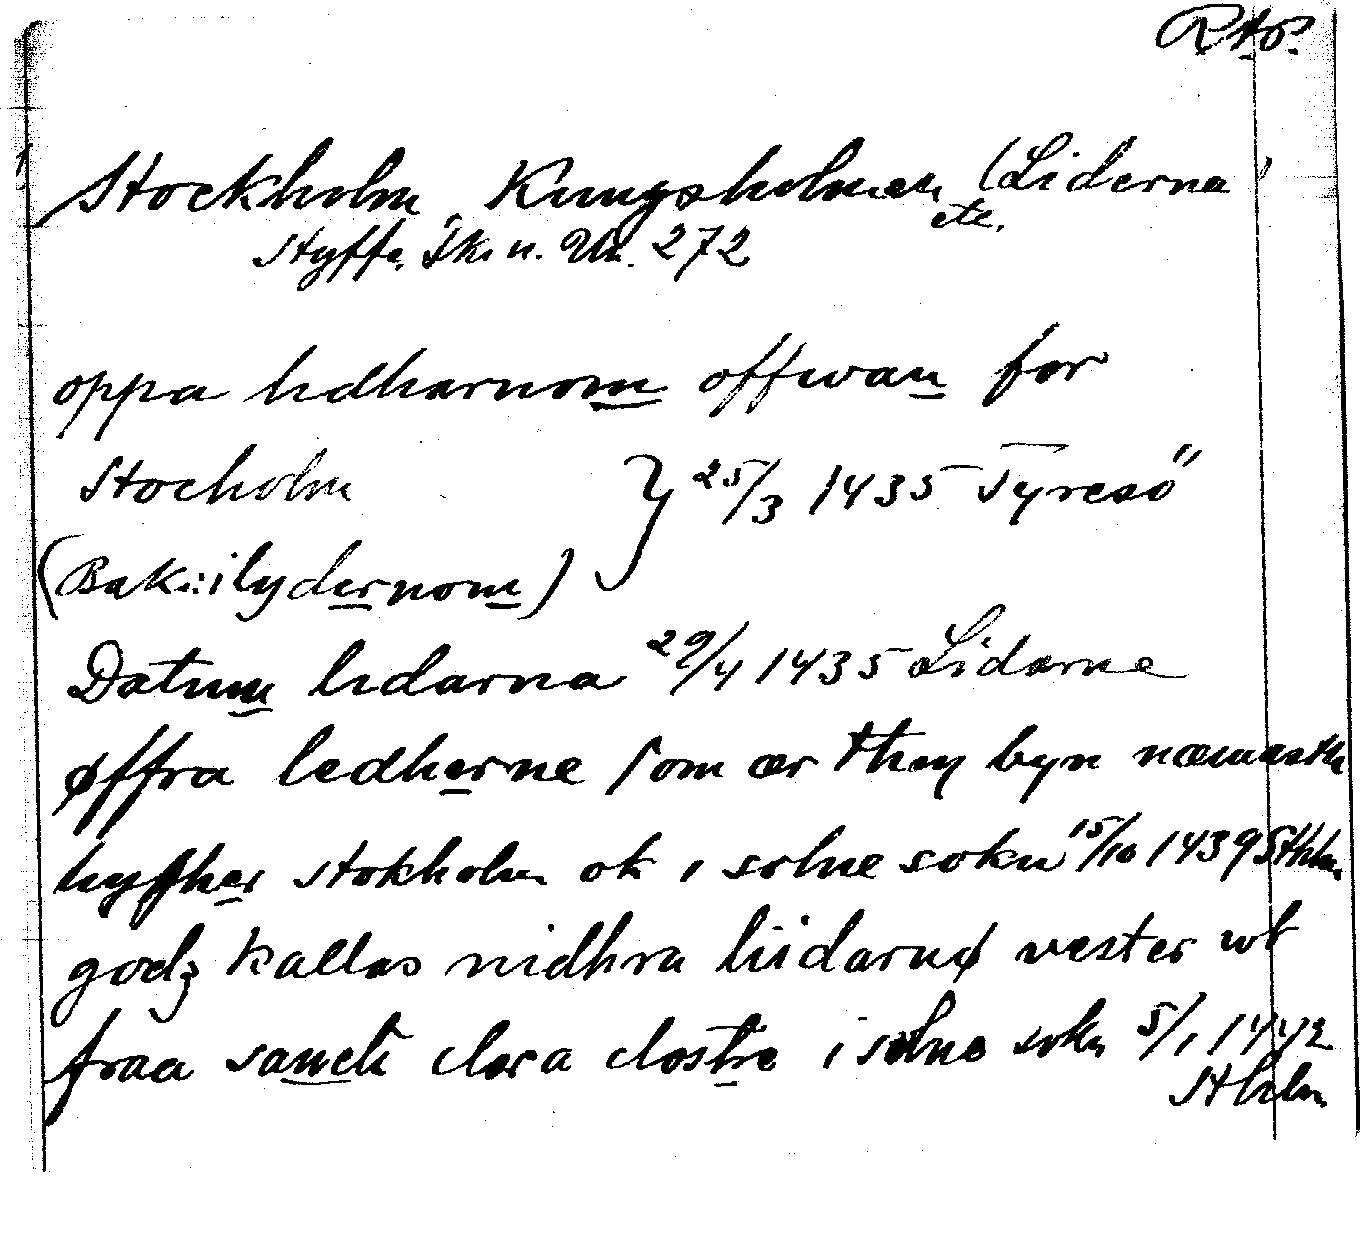 RAp.
Stockholm, Kungsholmen (Liderna
etc.
Styffe, Sk. u. Un. 272
oppa lidharnom offwan for
Stocholm } 25/3 1435 Tyresö
(Baks.: i lydernom)
Datum lidarna 29/4 1435 Lidarne
øffra ledherne som ær then byn næmasth
hyffher stokholm ok i solne sokn 15/10 1439 Sthlm.
godz kallas nidhra liidarnø vester wt
fraa sancte clara clostre i solne sokn 5/1 1442
Sthlm.